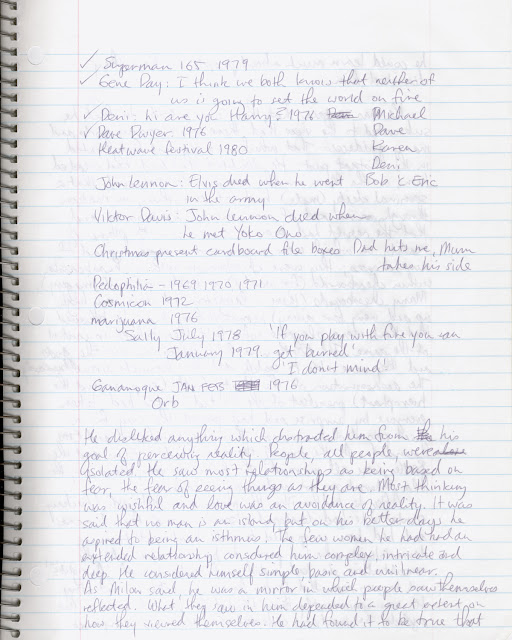 ✓ Superman 165 1979
✓ Gene Day: I think we both know that neither of
us is going to set the world on fire
✓ Deni: hi are you Harry? 1976 Michael
✓ Dave Dwyer 1976 Dave
Heatwave festival 1980 Karen
Deni
John Lennon: Elvis died when he went Bob & Eric
in the army
Viktor Davis: John Lennon died when
he met Yoko Ono
Christmas present cardboard file boxes Dad hits me, Mum
takes his side
Pedophilia - 1969 1970 1971
Cosmicon 1972
marijuana 1976
Sally July 1978 'If you play with fire you can
January 1979 get burned'
'I don't mind'
Gananoque JAN FEB 1976
Orb
He disliked anything which distracted him from his
goal of perceiving reality. People, all people, were
isolated. He saw most relationships as being based on
fear, the fear of seeing things as they are. Most thinking
was wishful and love was an avoidance of reality. It was
said that no man is an island, but on his better days he
aspired to being an isthmus. The few women he had had an
extended relationship considered him complex, intricate and
deep. He considered himself simple, basic and unilinear.
As Milan said, he was a mirror in which people saw themselves
reflected. What they saw in him depended to a great extent on
how they viewed themselves. He had found it to be true that